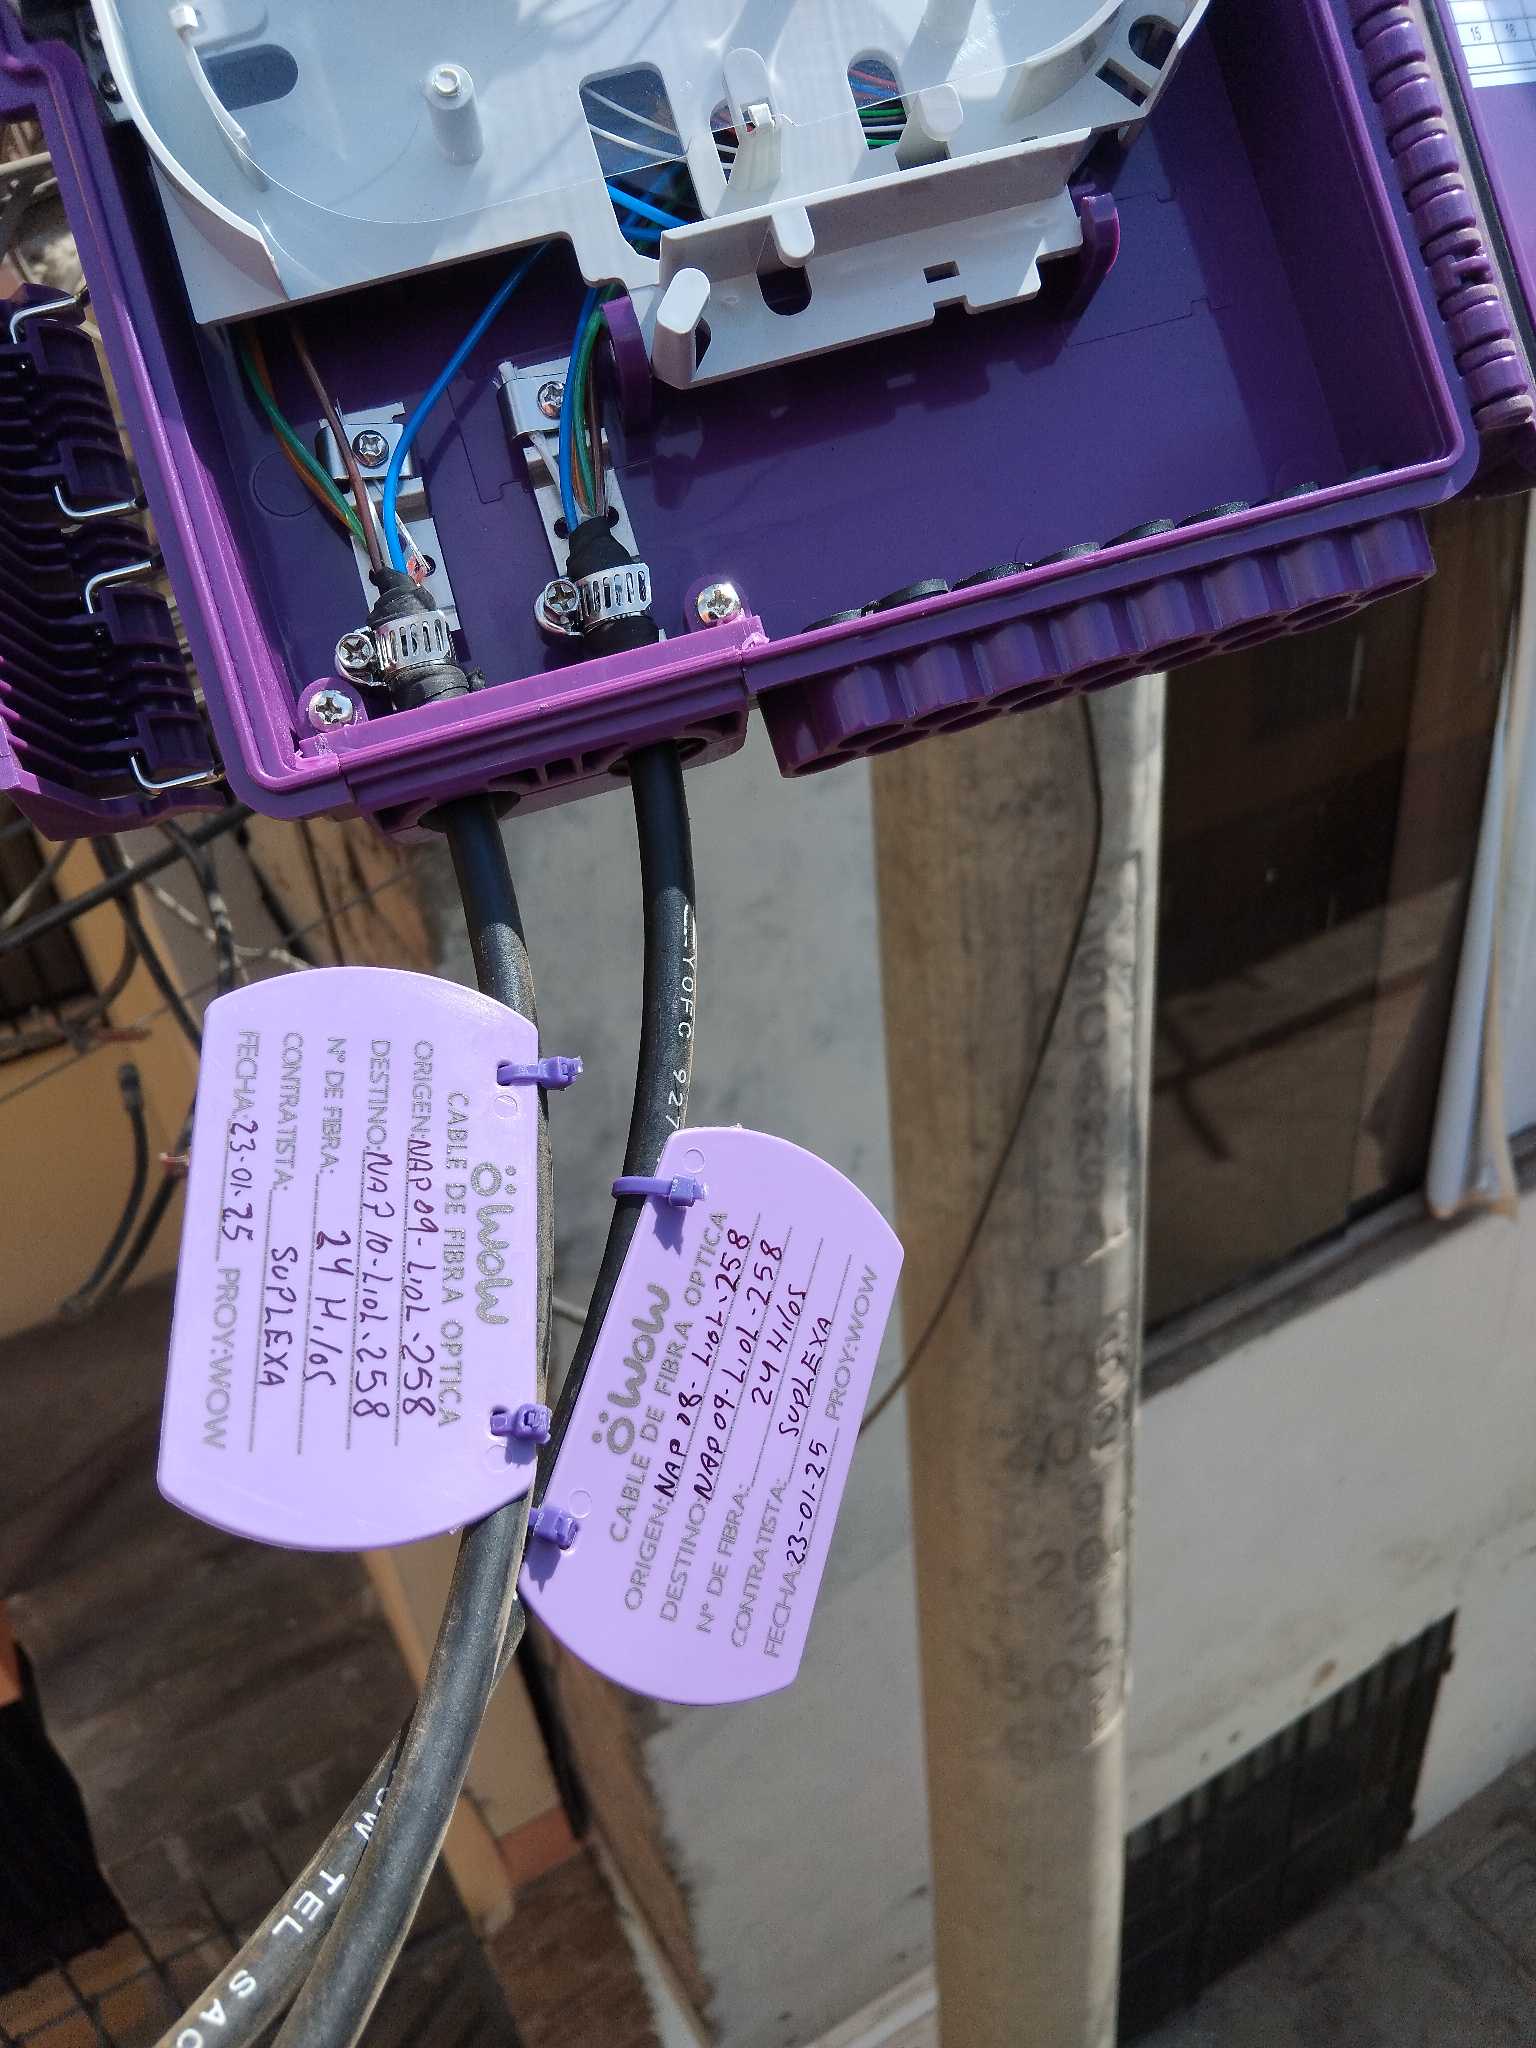 15 18
YOFC 927
WOW
CABLE DE FIBRA OPTICA
ORIGEN: NAP 09-LI0L-258
DESTINO: NAP 10-LI0L-258
N° DE FIBRA: 24 Hilos
CONTRATISTA: SUPLEXA
FECHA: 23-01-25 PROY: WOW
WOW
CABLE DE FIBRA OPTICA
ORIGEN: NAP 08-LI0L-258
DESTINO: NAP 09-LI0L-258
N° DE FIBRA: 24 Hilos
CONTRATISTA: SUPLEXA
FECHA: 23-01-25 PROY: WOW
OW TEL SAC